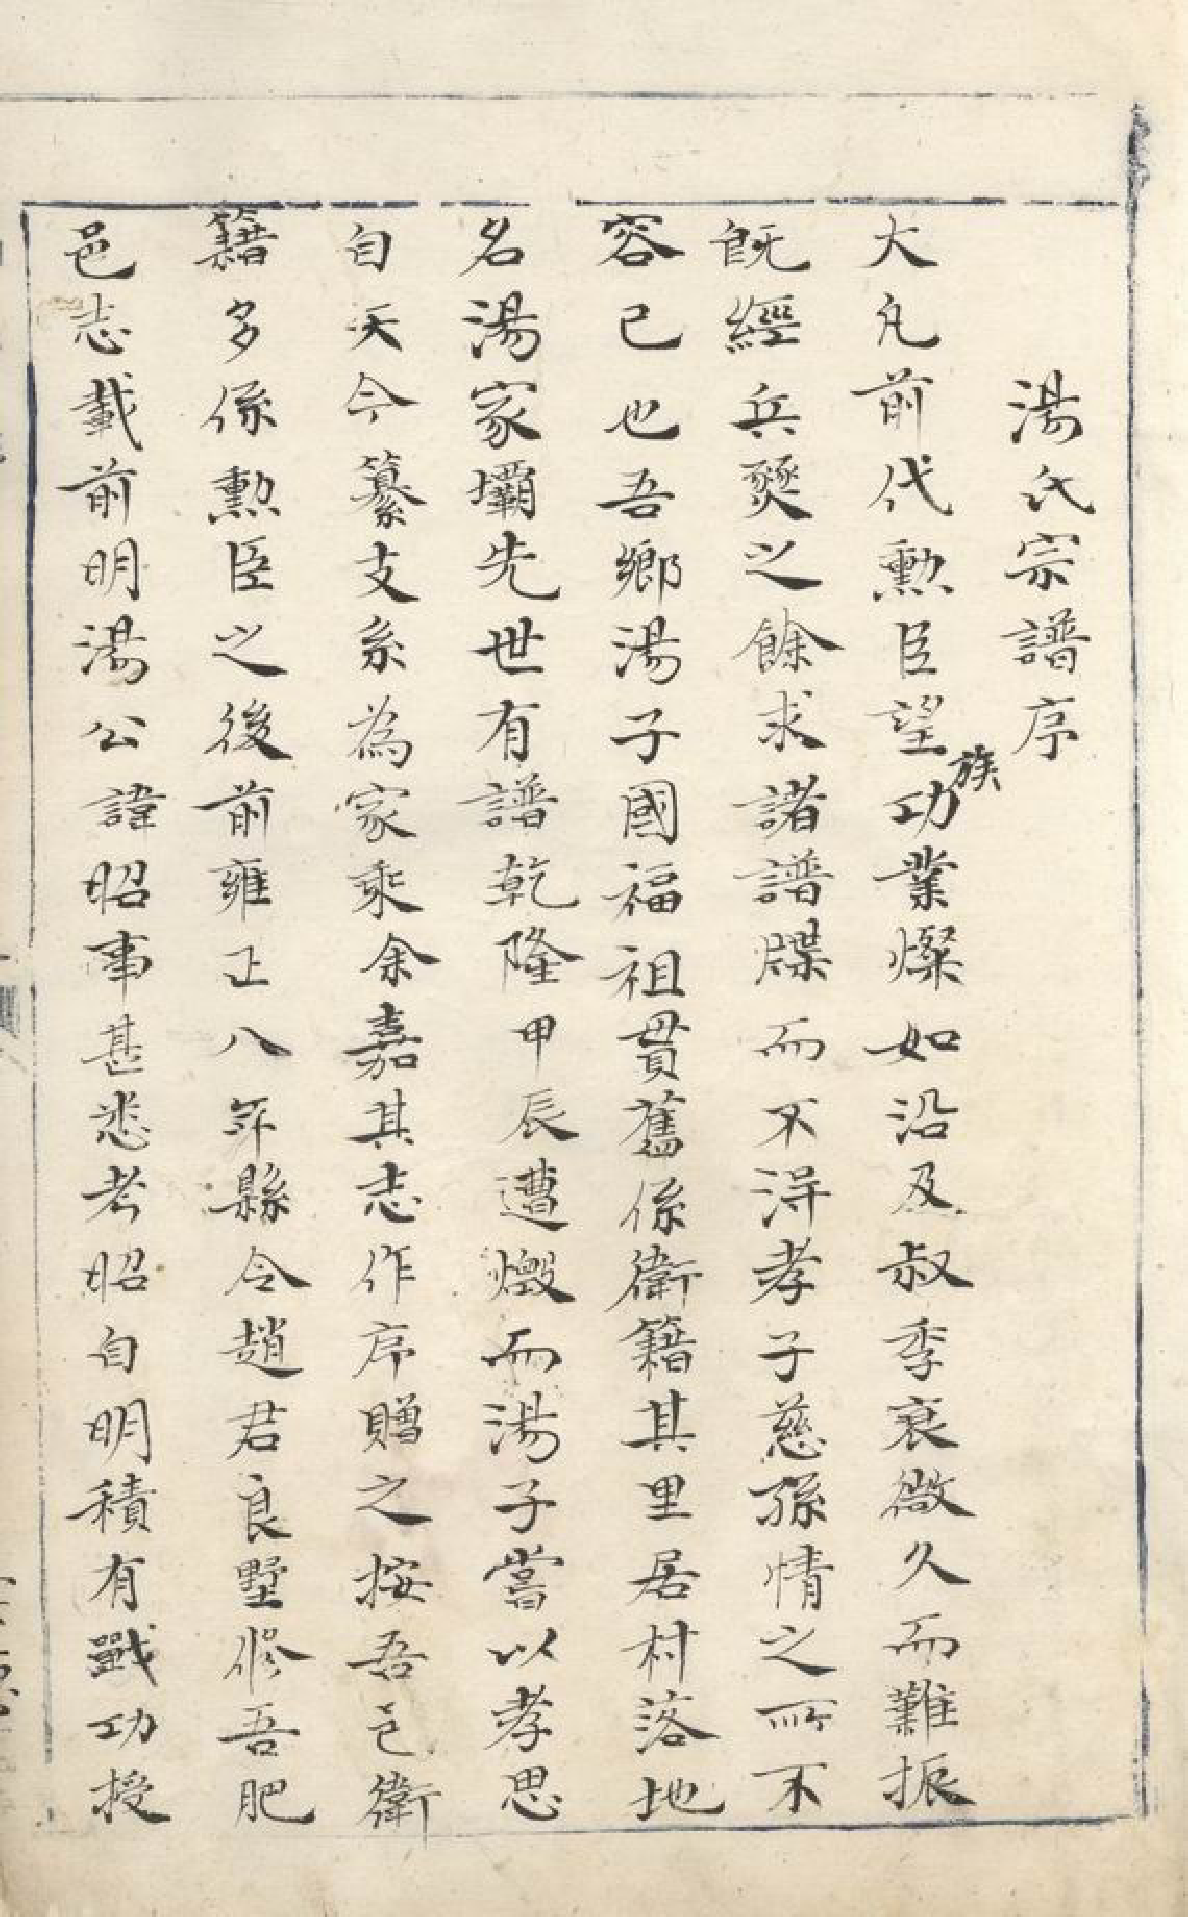 湯氏宗譜序
大凡前代勲臣望族功業燦如沿及叔季衰微久而難振
既經兵燹之餘求諸譜牒而不淂孝子慈孫情之所不
容已也吾鄉湯子國福祖貫舊係衛籍其里居村落地
名湯家壩先世有譜乾隆甲辰遭燬而湯子嘗以孝思
自矢今纂支系為家乘余嘉其志作序贈之按吾邑衛
籍多係勲臣之後前雍正八年縣令趙君良墅修吾肥
邑志載前明湯公諱昭事甚悉考昭自明積有戰功授